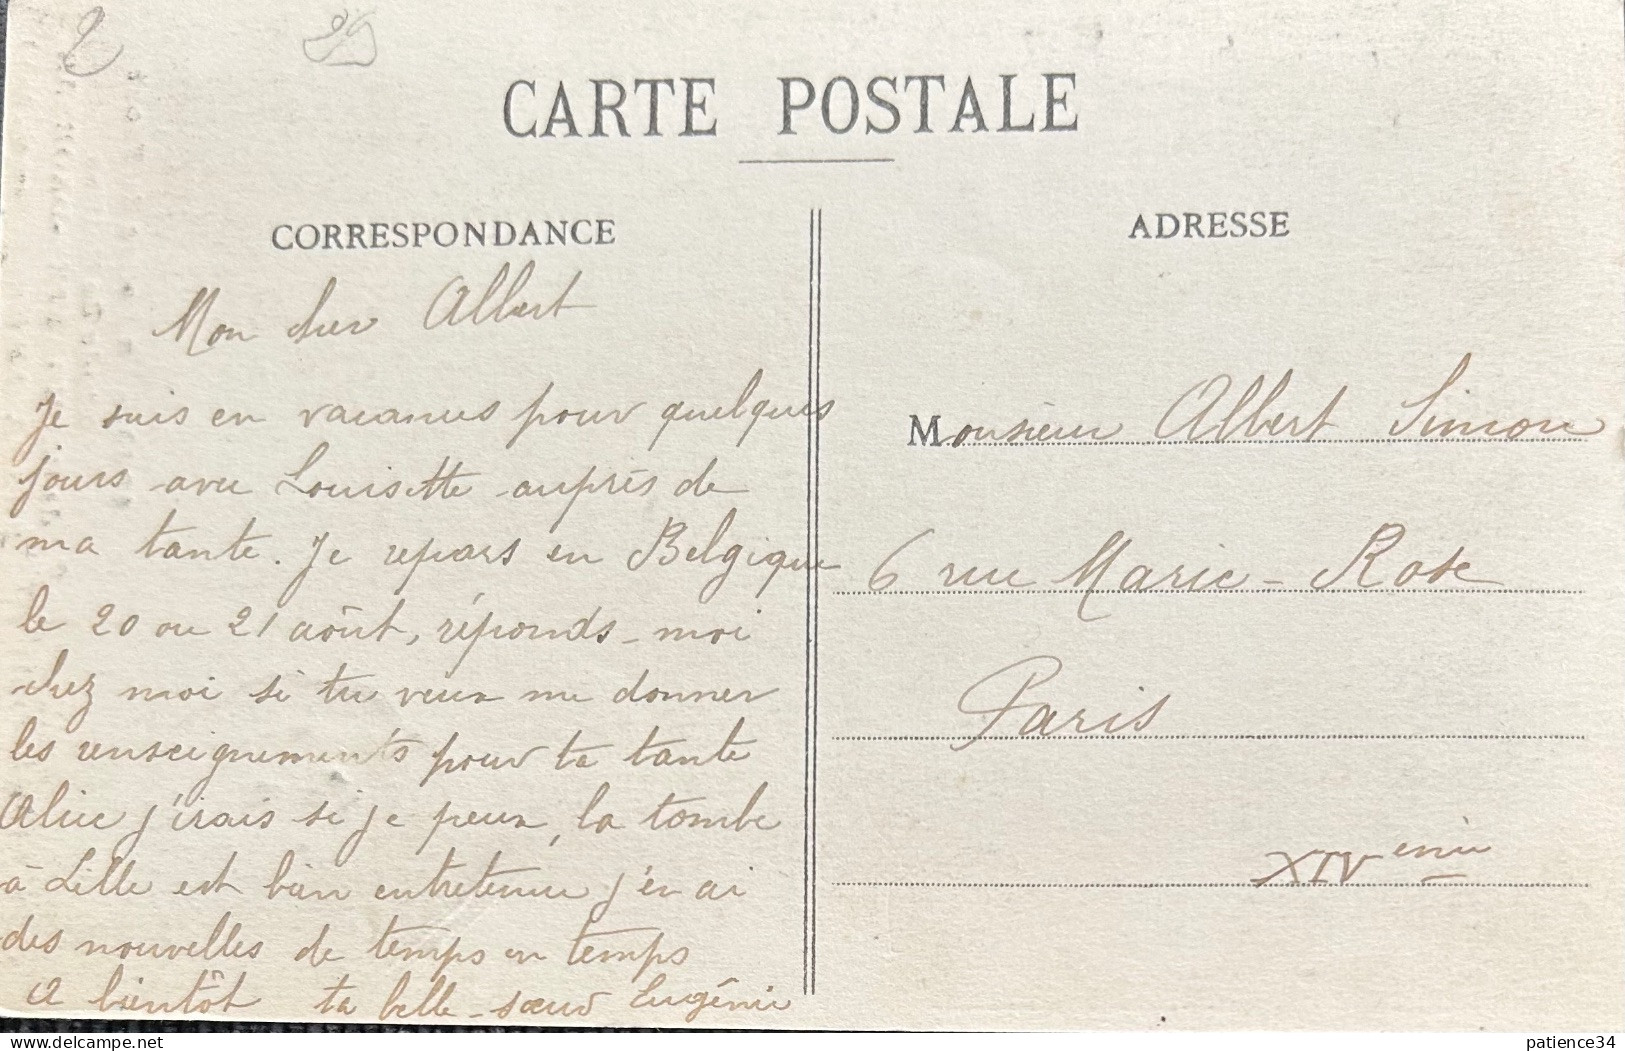 CARTE POSTALE
CORRESPONDANCE
Mon cher Albert
Je suis en vacances pour quelques
jours avec Louisette auprès de
ma tante. Je repars en Belgique
le 20 ou 21 août, réponds-moi
chez moi si tu veux me donner
les renseignements pour ta tante
Alice j'irais si je peux, la tombe
à Lille est bien entretenue j'en ai
des nouvelles de temps en temps
A bientôt ta belle-sœur Eugénie
ADRESSE
Monsieur Albert Simon
6 rue Marie-Rose
Paris
XIV ème
delcampe.net
patience34